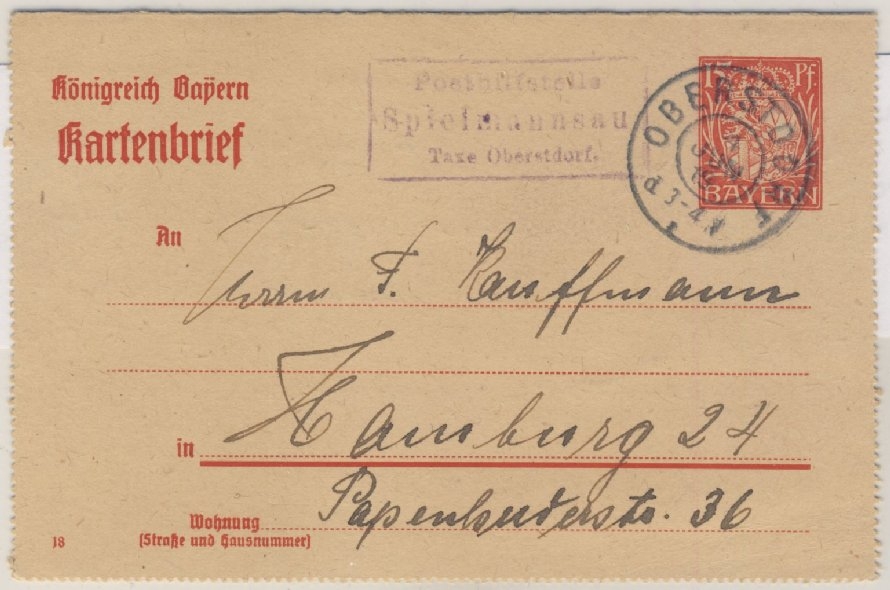 Königreich Bayern
Kartenbrief
Posthilfstelle
Spielmannsau
Taxe Oberstdorf.
15 Pf
BAYERN
OBERSTDORF
3-4
An
Herrn F. Kauffmann
in Hamburg 24
Wohnung Papenhuderstr. 36
(Straße und Hausnummer)
18